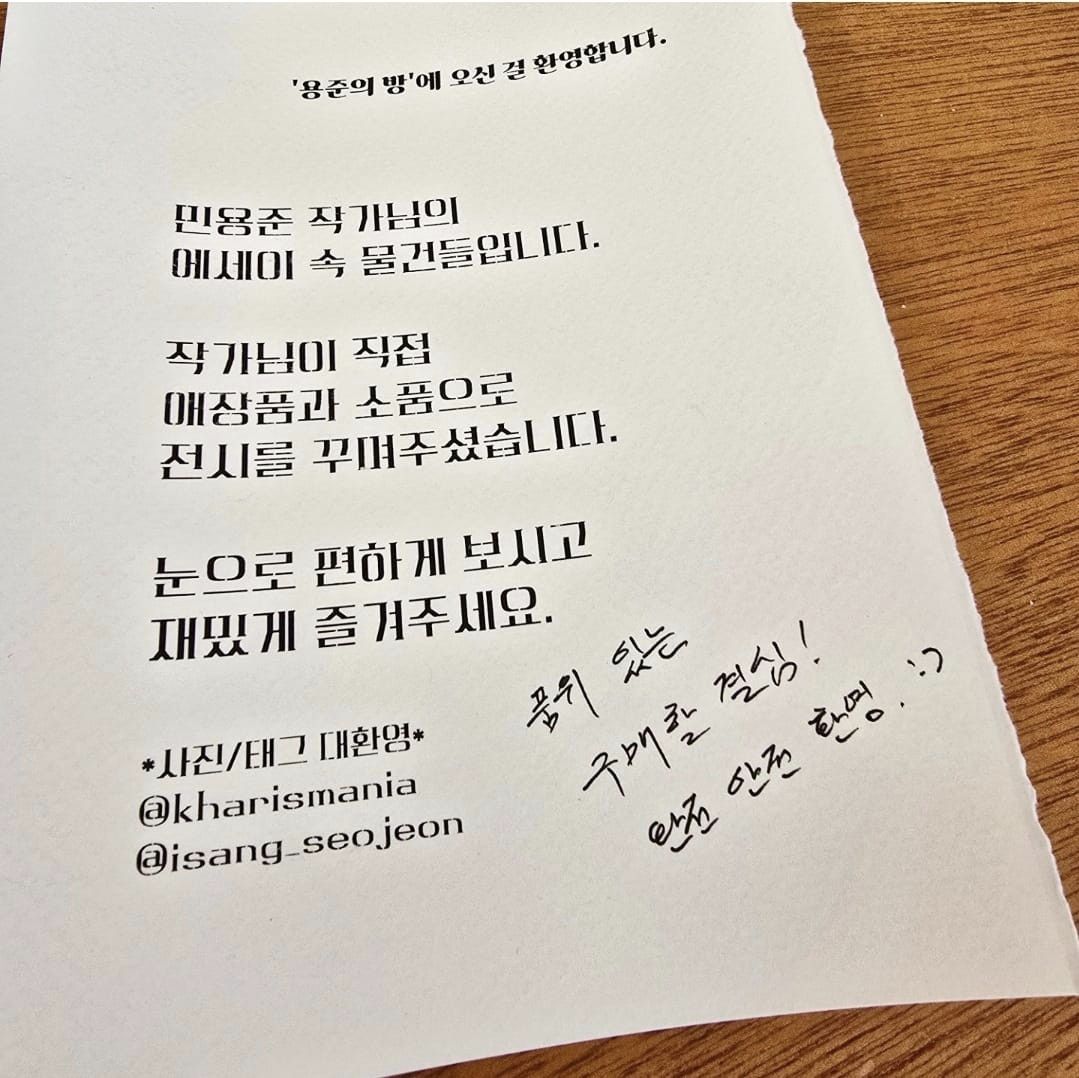 '용준의 방'에 오신 걸 환영합니다.
민용준 작가님의
에세이 속 물건들입니다.
작가님이 직접
애장품과 소품으로
전시를 꾸며주셨습니다.
눈으로 편하게 보시고
재밌게 즐겨주세요.
*사진/태그 대환영*
@kharismania
@isang_seojeon
품위 있는
구매할 결심!
완전 안전 환영. :-)